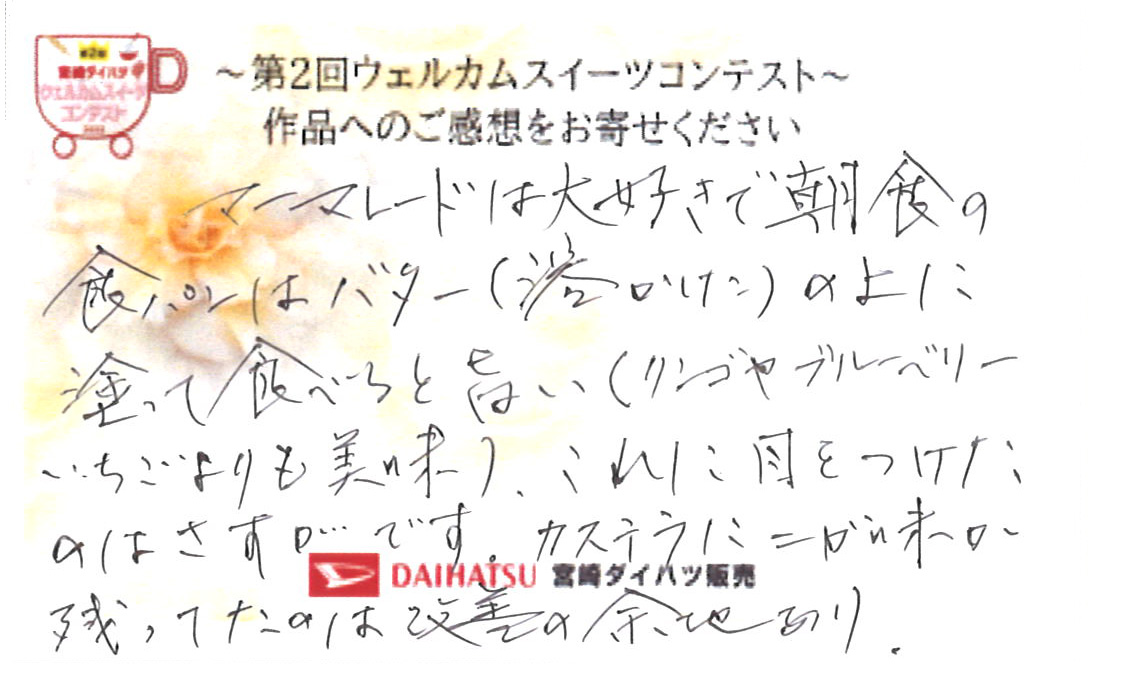 第2回
宮崎ダイハツ
ウェルカムスイーツ
コンテスト
～第2回ウェルカムスイーツコンテスト～
作品へのご感想をお寄せください
マーマレードは大好きで朝食の
食パンはバター(溶かけた)のよに
塗って食べると旨い(リンゴやブルーベリー
いちごよりも美味)、これに目をつけた
のはさすがです。カステラにニガ味が
DAIHATSU 宮崎ダイハツ販売
残ってたのは改善の余地あり.